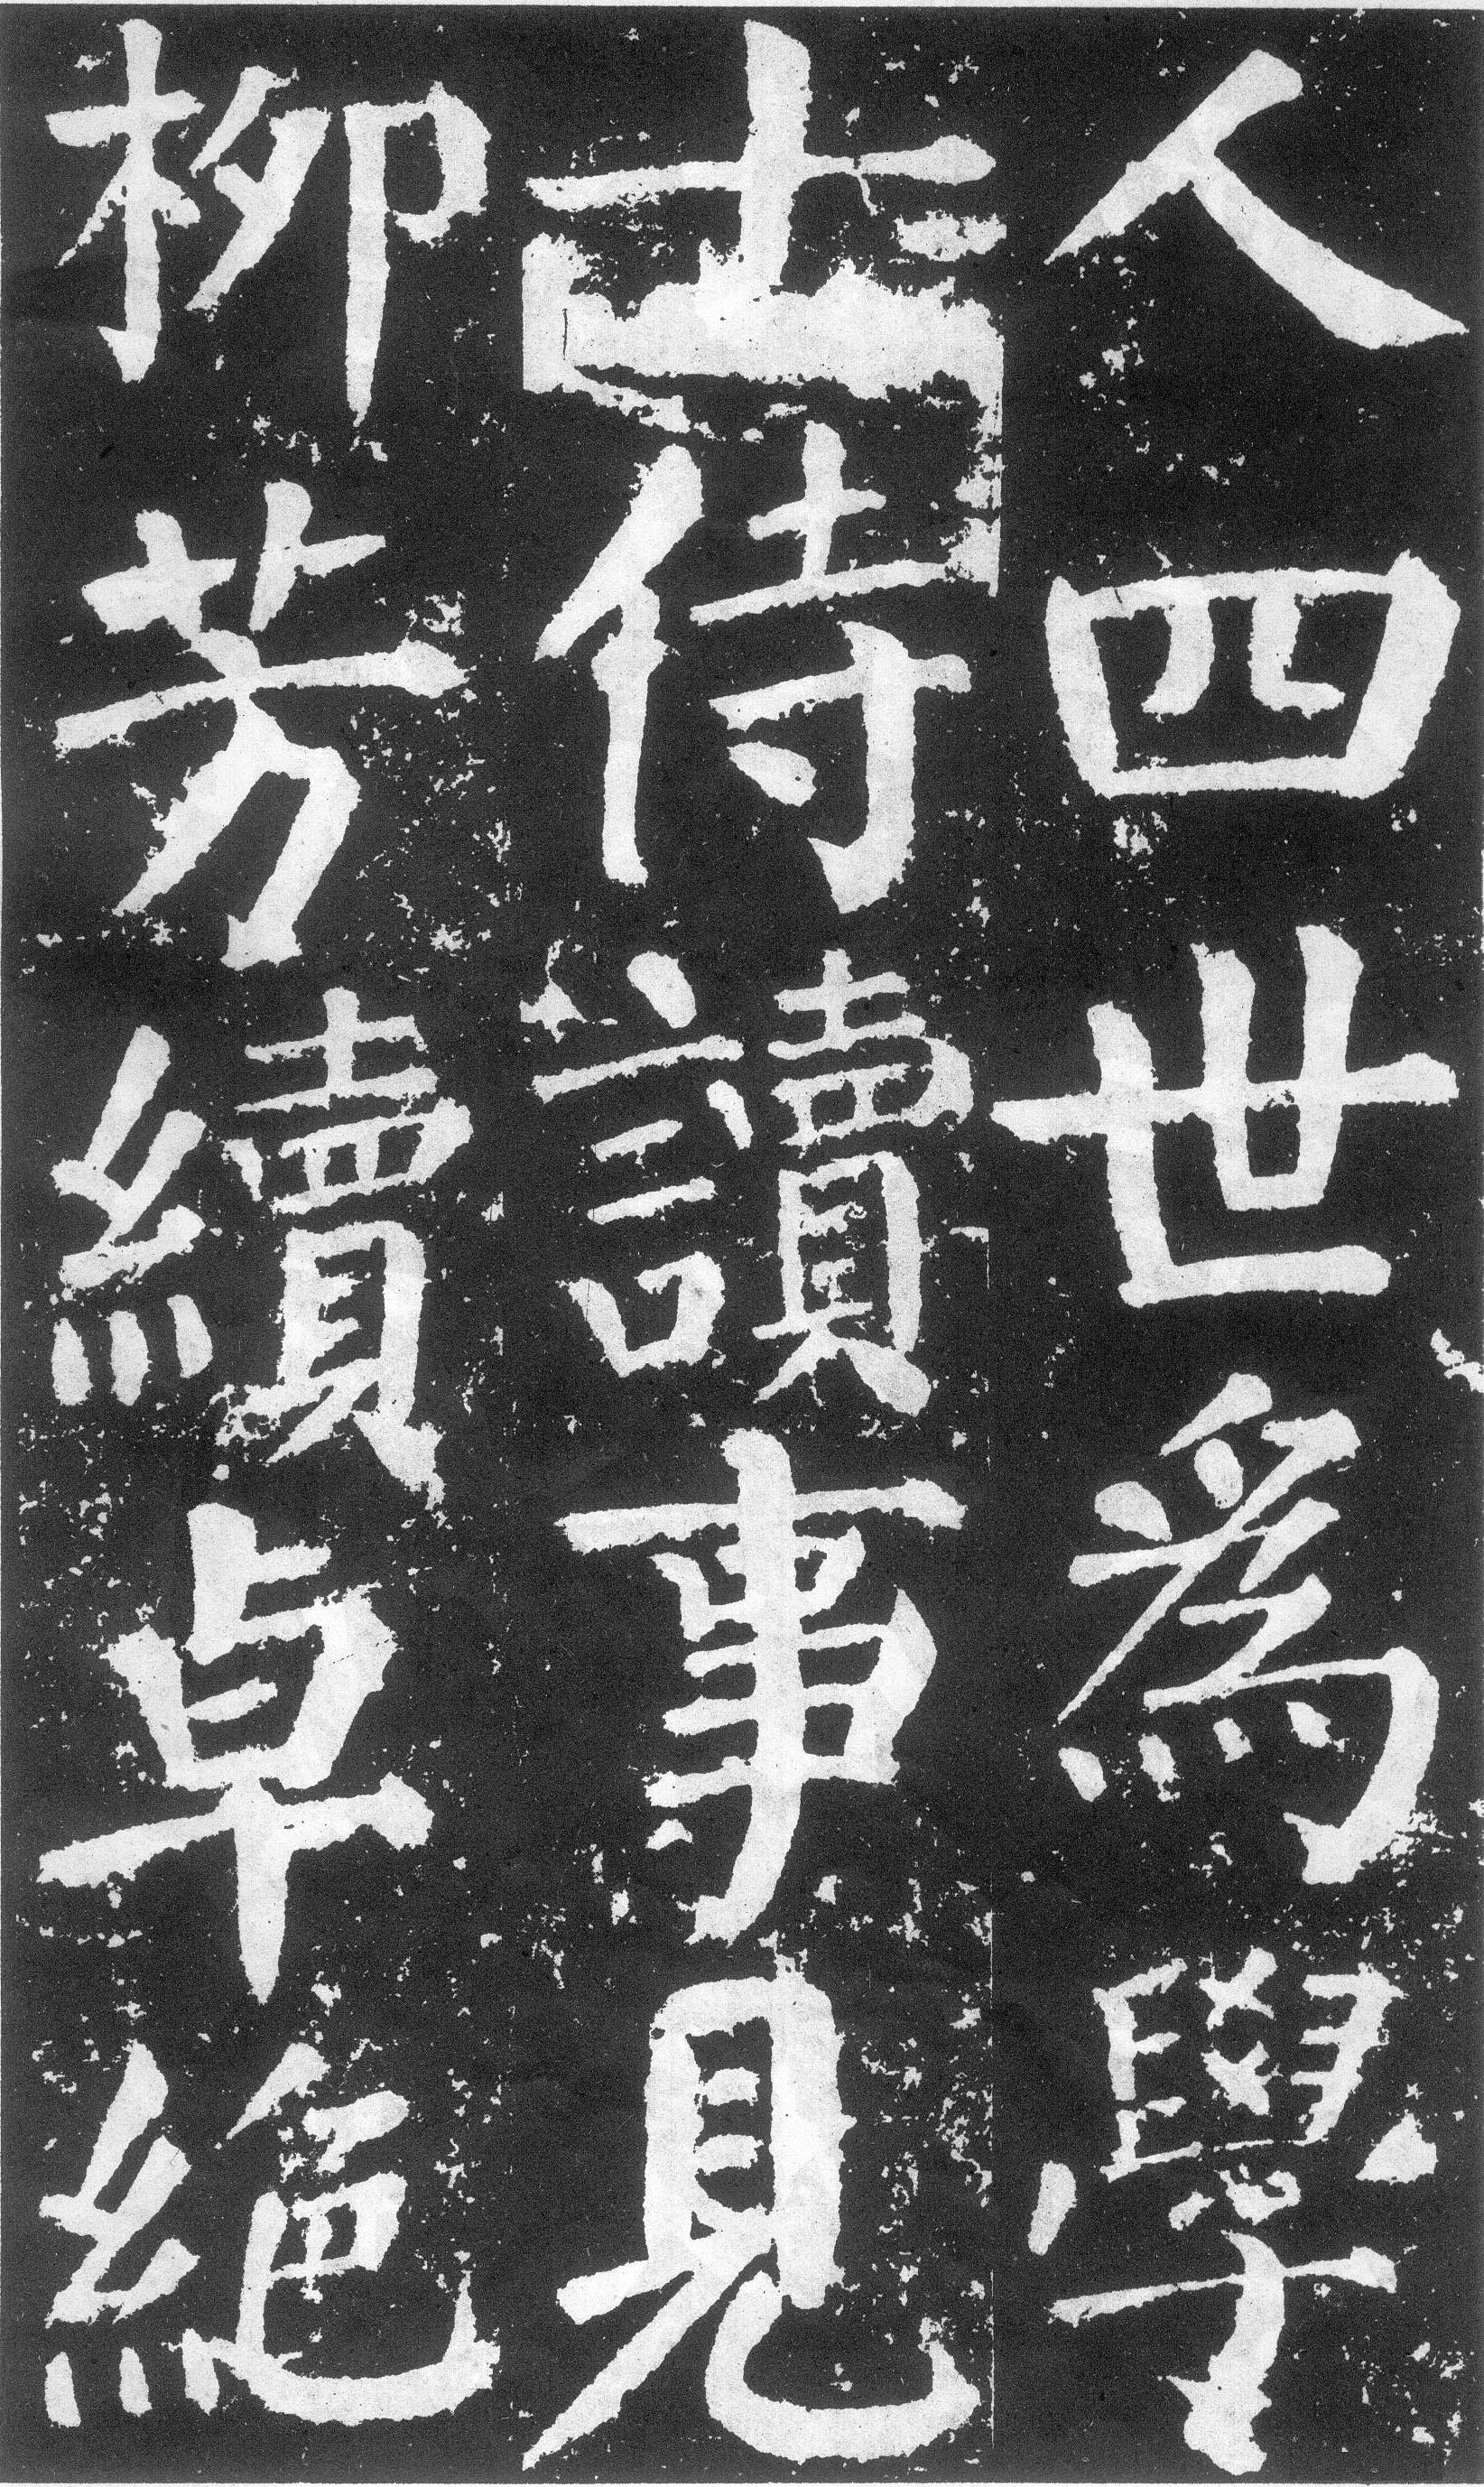 人四世爲學
士侍讀事見
柳芳續卓絕